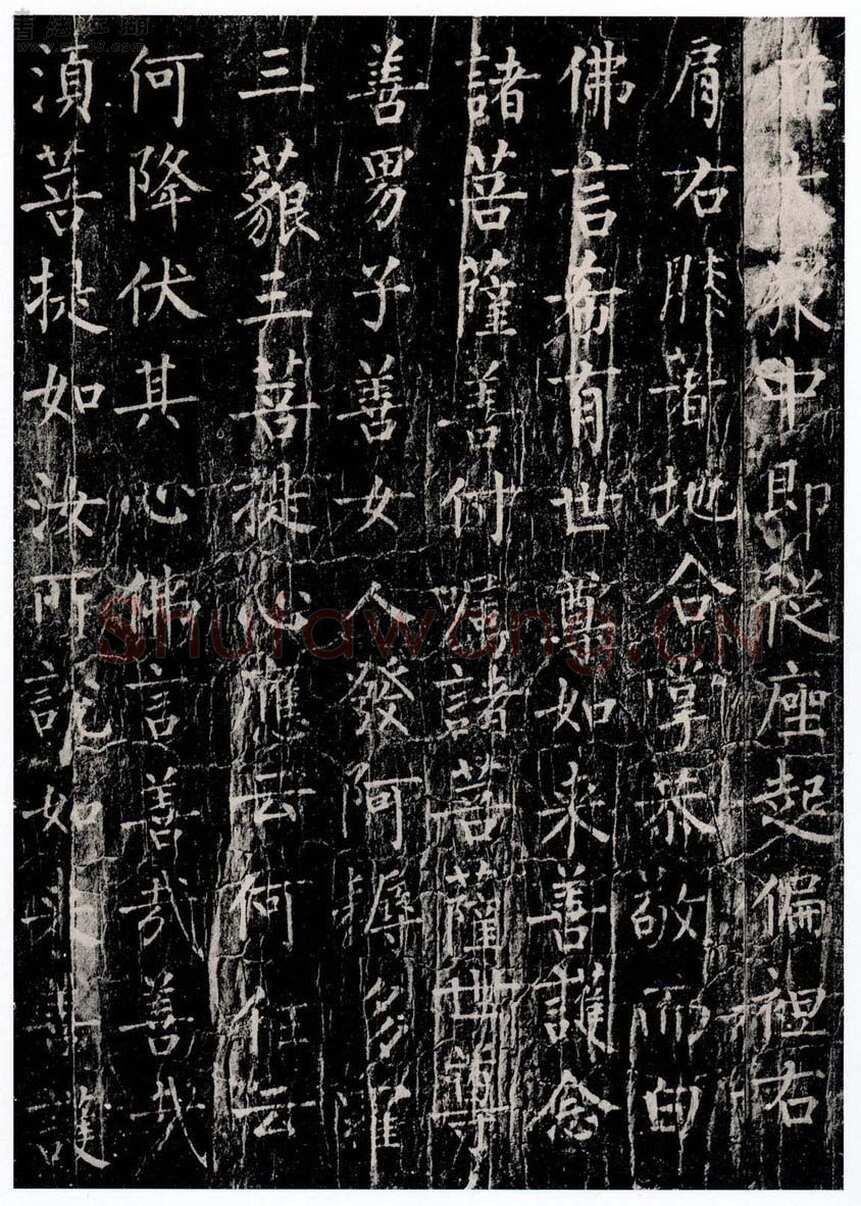 在大眾中即從座起偏袒右
肩右膝著地合掌恭敬而白
佛言希有世尊如来善護念
諸菩薩善付嘱諸菩薩世尊
善男子善女人發阿耨多羅
三藐三菩提心應云何住云
何降伏其心佛言善哉善哉
須菩提如汝所說如来善護
Shufawang.CN